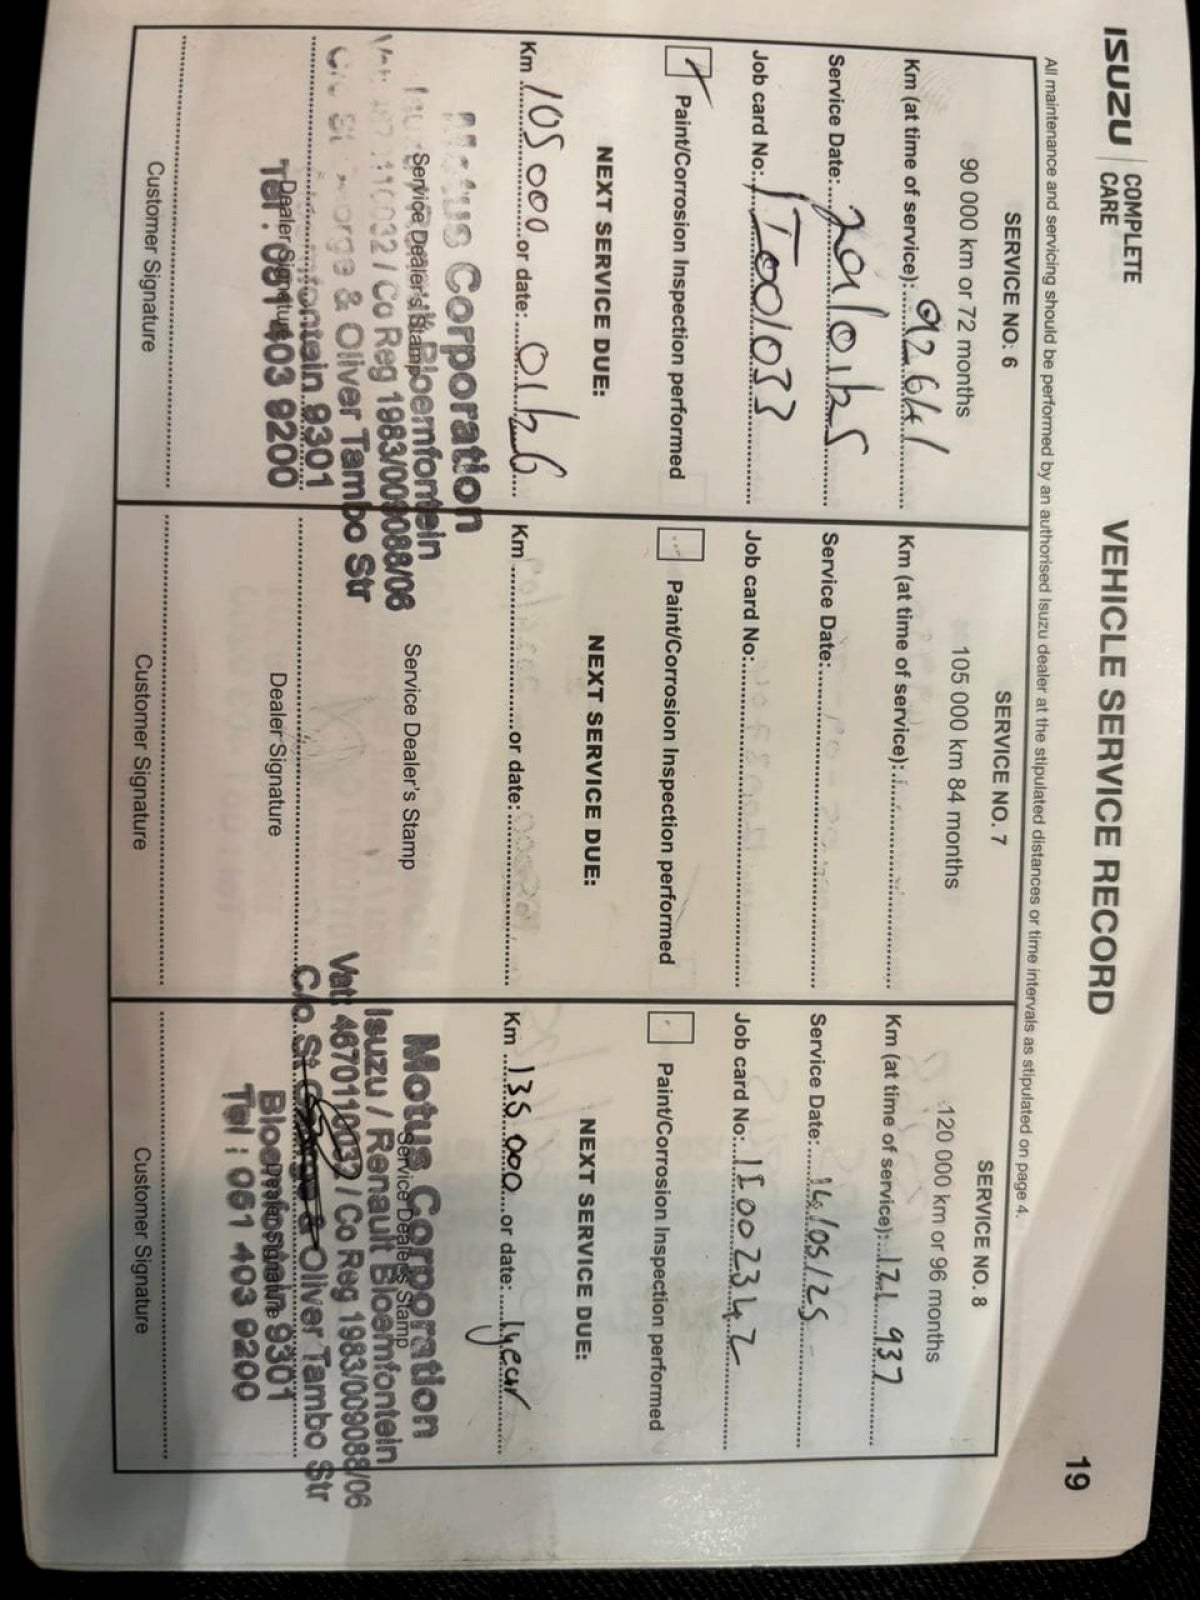 ISUZU | COMPLETE CARE
VEHICLE SERVICE RECORD
19
All maintenance and servicing should be performed by an authorised Isuzu dealer at the stipulated distances or time intervals as stipulated on page 4.
SERVICE NO: 6
90 000 km or 72 months
Km (at time of service):
Service Date:
Job card No:
Paint/Corrosion Inspection performed
NEXT SERVICE DUE:
Km 105 000 or date: 01/26
Motus Corporation
Service Dealer's Stamp
Bloemfontein
Co Reg 1983/009088/06
& Oliver Tambo Str
9301
Dealer Signature
Tel : 051 403 9200
Customer Signature
SERVICE NO. 7
105 000 km 84 months
Km (at time of service):
Service Date:
Job card No:
Paint/Corrosion Inspection performed
NEXT SERVICE DUE:
Km or date:
Service Dealer's Stamp
Dealer Signature
Customer Signature
SERVICE NO. 8
120 000 km or 96 months
Km (at time of service): 121 937
Service Date: 14/05/25
Job card No:
Paint/Corrosion Inspection performed
NEXT SERVICE DUE:
Km 135 000 or date: 1 year
Motus Corporation
Service Dealer's Stamp
Isuzu / Renault Bloemfontein
Vat: 4670110032 / Co Reg 1983/009088/06
C/o St & Oliver Tambo Str
Bloemfontein 9301
Dealer Signature
Tel : 051 403 9200
Customer Signature